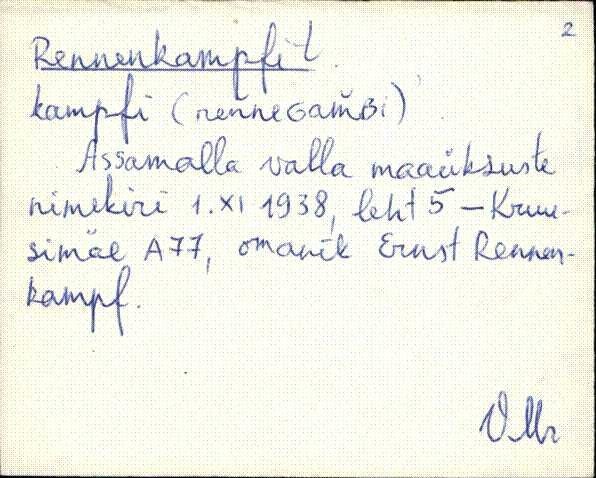 2
Rennenkampfi t.
kampfi (reňňeGam̆Bi)
Assamalla valla maaüksuste
nimekiri 1.XI 1938, leht 5 – Kruu-
simäe A77, omanik Ernst Rennen-
kampf.